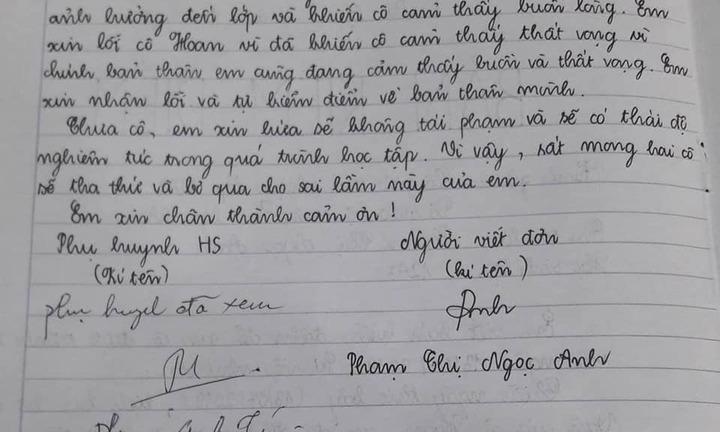 ảnh hưởng đến lớp và khiến cô cảm thấy buồn lòng. Em
xin lỗi cô Hoan vì đã khiến cô cảm thấy thất vọng vì
chính bản thân em cũng đang cảm thấy buồn và thất vọng. Em
xin nhận lỗi và tự kiểm điểm về bản thân mình.
Thưa cô, em xin hứa sẽ không tái phạm và sẽ có thái độ
nghiêm túc trong quá trình học tập. Vì vậy, rất mong hai cô
sẽ tha thứ và bỏ qua cho sai lầm này của em.
Em xin chân thành cảm ơn!
Phụ huynh HS Người viết đơn
(Kí tên) (kí tên)
phụ huynh đã xem Anh
Phạm Thị Ngọc Anh